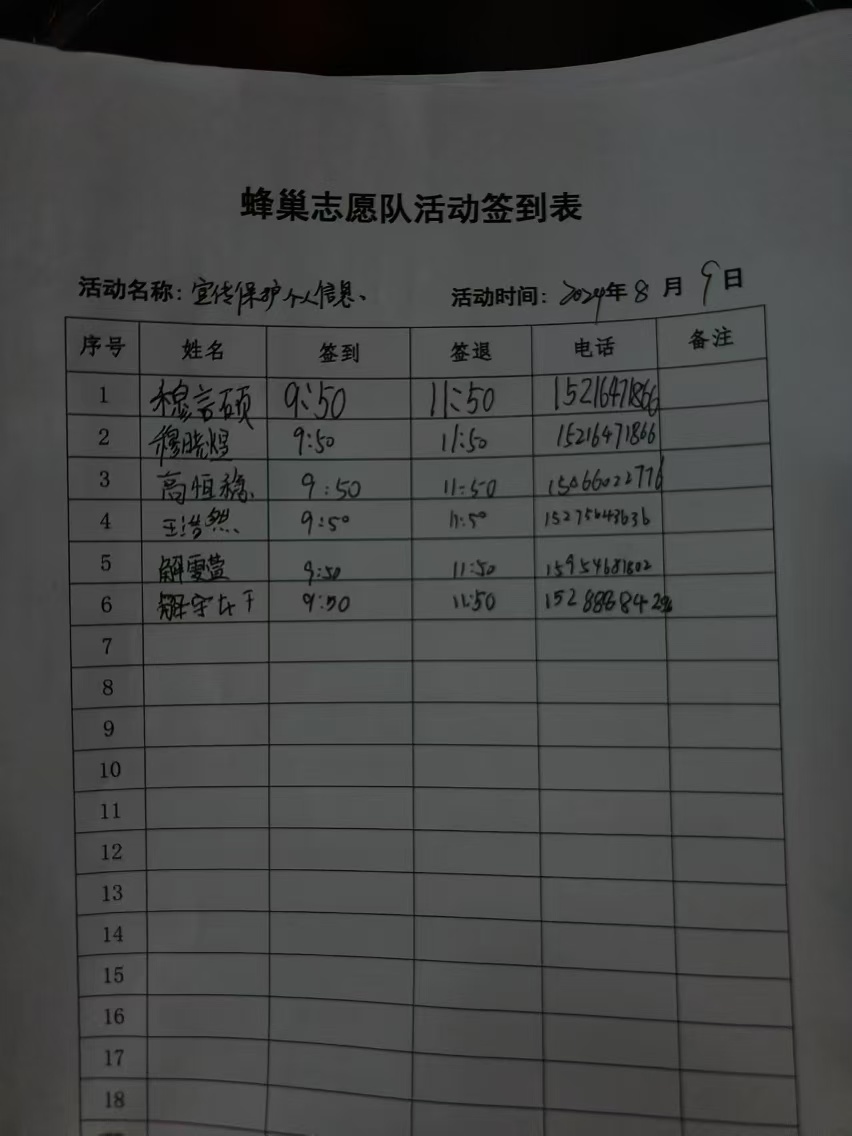 蜂巢志愿队活动签到表
活动名称：宣传保护个人信息、 活动时间：2024年8月9日
序号 姓名 签到 签退 电话 备注
1 穆言硕 9:50 11:50 15216471866
2 穆晓煜 9:50 11:50 15216471866
3 高恒稳 9:50 11:50 15066022776
4 王浩然 9:50 11:50 15275643636
5 解雯萱 9:50 11:50 15954681802
6 解守 9:50 11:50
7
8
9
10
11
12
13
14
15
16
17
18